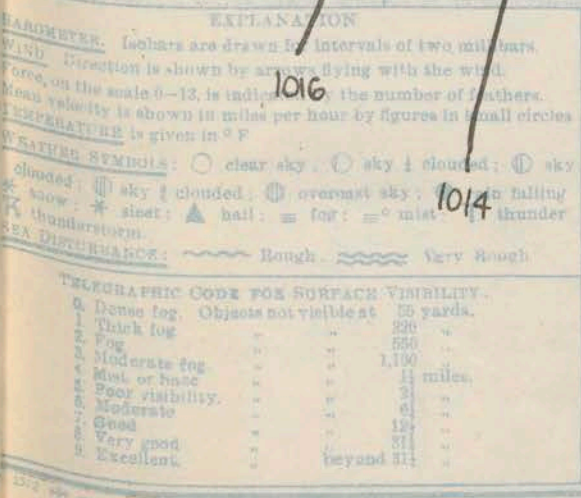 EXPLANATION
BAROMETER. Isobars are drawn for intervals of two millibars.
WIND. Direction is shown by arrows flying with the wind.
1016
Force, on the scale 0–12, is indicated by the number of feathers.
Mean velocity is shown in miles per hour by figures in small circles
TEMPERATURE is given in ° F
WEATHER SYMBOLS: clear sky; sky clouded; sky
clouded; sky clouded; overcast sky; rain falling
1014
snow; sleet; hail; fog; mist; thunder
thunderstorm.
SEA DISTURBANCE: Rough. Very Rough
TELEGRAPHIC CODE FOR SURFACE VISIBILITY.
0. Dense fog. Objects not visible at 55 yards.
1. Thick fog " " 220 "
2. Fog " " 550 "
3. Moderate fog " " 1,100 "
4. Mist or haze " " 1¼ miles.
5. Poor visibility. " " 2½ "
6. Moderate " " 6¼ "
7. Good " " 12½ "
8. Very good " " 31¼ "
9. Excellent. " beyond 31¼ "